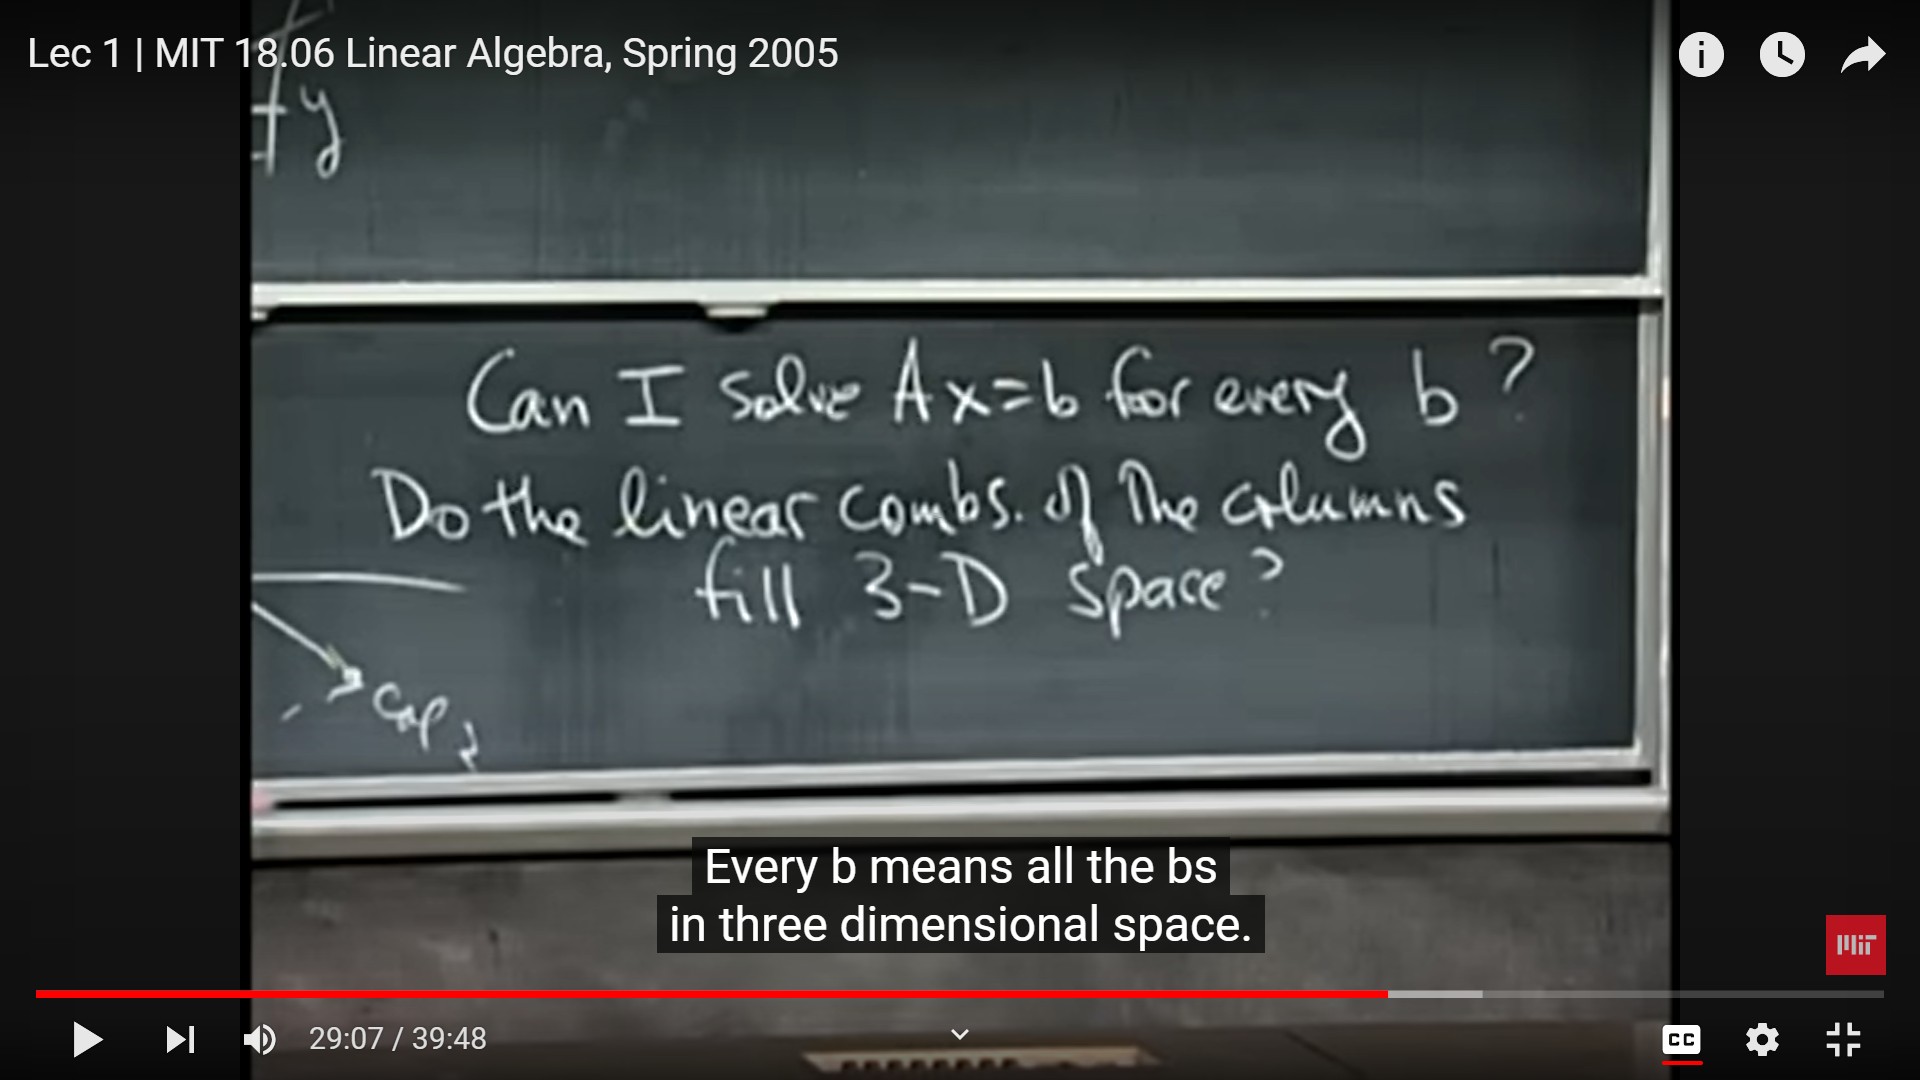 Lec 1 | MIT 18.06 Linear Algebra, Spring 2005
y
Can I solve Ax=b for every b?
Do the linear combs. of the columns
fill 3-D space?
col 2
Every b means all the bs
in three dimensional space.
MIT
29:07 / 39:48
CC